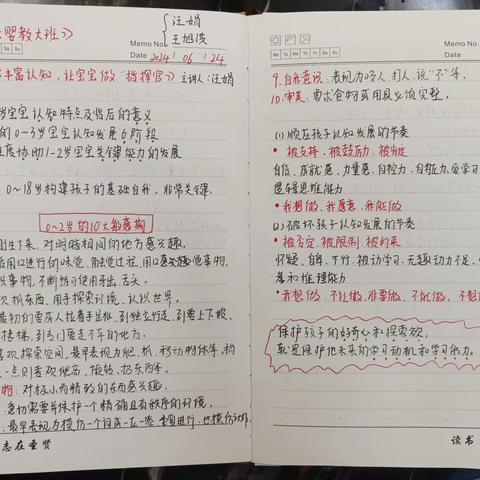 婴教大班》
汪娟
王旭滨
Memo No.
Date 2024 / 06 / 24
丰富认知，让宝宝做"指挥官》 主讲人：汪娟
岁宝宝认知特点及背后的意义
的0~3岁宝宝认知发展6阶段
度协助1-2岁宝宝关键能力的发展
0~18岁构建孩子的基础自我，非常关键
0~2岁的10大敏感期
刚生下来，对明暗相间的地方感兴趣
用口进行的味觉、触觉过程，用口
事物，不断练习使用牙齿，舌头
抓东西，用手探索环境，认识世界。
最初的要成人拉着手当拐，到独立行走，到要上下坡、
楼梯，到专门要走不平的地方。
喜欢探索空间，最早表现为爬、抓、移动物体等，稍
一点则喜欢爬高、旋转、扔东西等。
物：对极小而精致的东西感兴趣。
：急切需要并保护一个精确且有秩序的环境。
：最早表现为模仿一个词或一句 重复进行，也模仿动作
志在圣贤
Memo No.
Mo Tu We Th Fr Sa Su
Date
9.自我意识：表现为咬人、打人、说"不"等。
10.审美：要求食物或用具必须完整。
(1) 顺应孩子认知发展的节奏
• 被支持、被鼓励、被肯定
自信、成就感、力量感、自控力、自制力、爱学习
逻辑思维能力
• 我想做、我愿意、我能做
(2) 破坏孩子认知发展的节奏
• 被否定、被限制、被约束
怀疑、自卑、不行、被动学习、无趣、动力不足、
差和推理能力
• 我想做、不让做、非要做、不能做、不想
保护孩子的好奇心和探索欲，
就是保护他未来的学习动机和学习能力。
读书